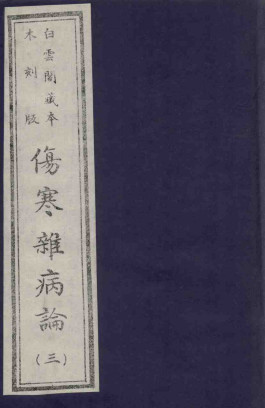 白雲閣藏本
木刻版
傷寒雜病論
(三)